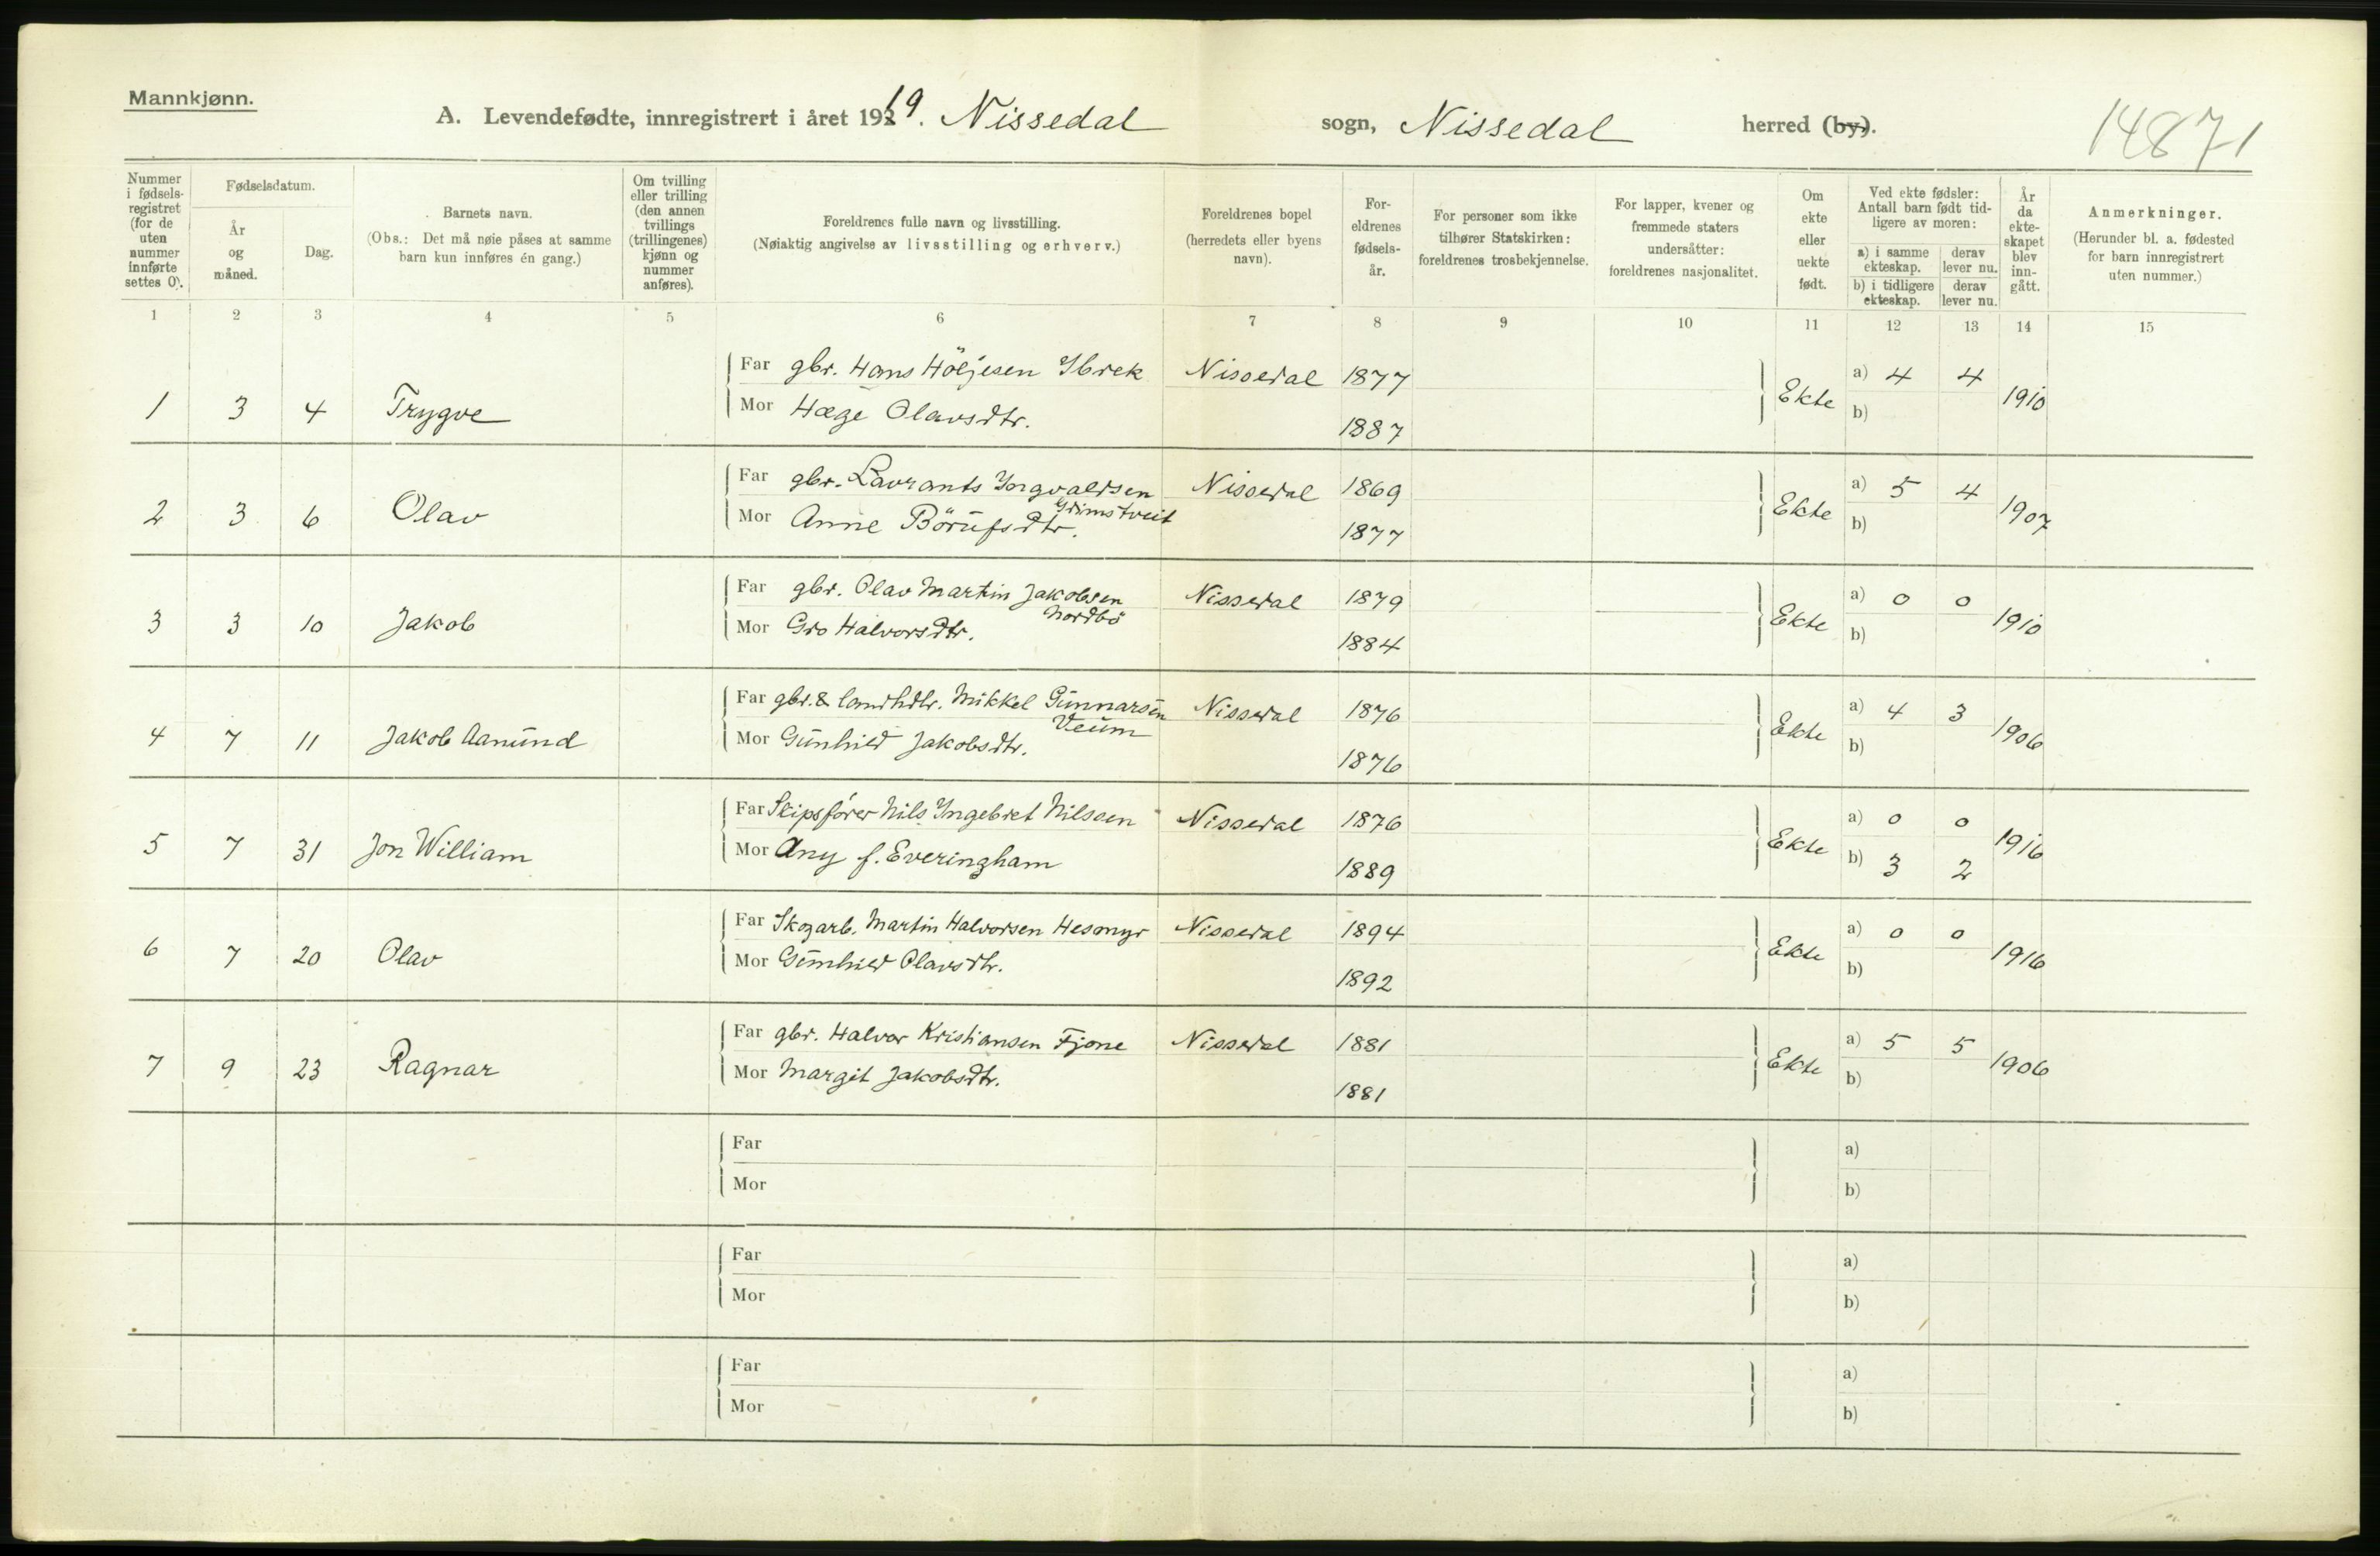 Mannkjønn.
A. Levendefødte, innregistrert i året 1919. Nissedal sogn, Nissedal herred (by).
14871
Nummer i fødsels-registret (for de uten nummer innførte settes 0).
Fødselsdatum.
År og måned.
Dag.
Barnets navn.
(Obs.: Det må nøie påses at samme barn kun innføres én gang.)
Om tvilling eller trilling (den annen tvillings (trillingenes) kjønn og nummer anføres).
Foreldrenes fulle navn og livsstilling.
(Nøiaktig angivelse av livsstilling og erhverv.)
Foreldrenes bopel (herredets eller byens navn).
For-eldrenes fødsels-år.
For personer som ikke tilhører Statskirken: foreldrenes trosbekjennelse.
For lapper, kvener og fremmede staters undersåtter: foreldrenes nasjonalitet.
Om ekte eller uekte født.
Ved ekte fødsler: Antall barn født tid-ligere av moren:
a) i samme ekteskap. derav lever nu.
b) i tidligere ekteskap. derav lever nu.
År da ekte-skapet blev inn-gått.
Anmerkninger.
(Herunder bl. a. fødested for barn innregistrert uten nummer.)
1 2 3 4 5 6 7 8 9 10 11 12 13 14 15
Far gbr. Hans Höljesen Ybrek Nissedal 1877 a) 4 4
1 3 4 Trygve Mor Hæge Olavsdtr. 1887 Ekte b) 1910
Far gbr. Lavrants Yngvaldsen Nissedal 1869 a) 5 4
Grimstveit
2 3 6 Olav Mor Anne Börufsdtr. 1877 Ekte b) 1907
Far gbr. Olav Martin Jakobsen Nissedal 1879 a) 0 0
Nordbö
3 3 10 Jakob Mor Gro Halvorsdtr. 1884 Ekte b) 1910
Far gbr. & landhdlr. Mikkel Gunnarsen Nissedal 1876 a) 4 3
Veum
4 7 11 Jakob Aanund Mor Gunhild Jakobsdtr. 1876 Ekte b) 1906
Far Skipsfører Nils Yngebret Nilsen Nissedal 1876 a) 0 0
5 7 31 Jon William Mor Any f. Everingham 1889 Ekte b) 3 2 1916
Far Skogarb. Martin Halvorsen Hesmyr Nissedal 1894 a) 0 0
6 7 20 Olav Mor Gunhild Olavsdtr. 1892 Ekte b) 1916
Far gbr. Halvor Kristiansen Fjone Nissedal 1881 a) 5 5
7 9 23 Ragnar Mor Margit Jakobsdtr. 1881 Ekte b) 1906
Far a)
Mor b)
Far a)
Mor b)
Far a)
Mor b)